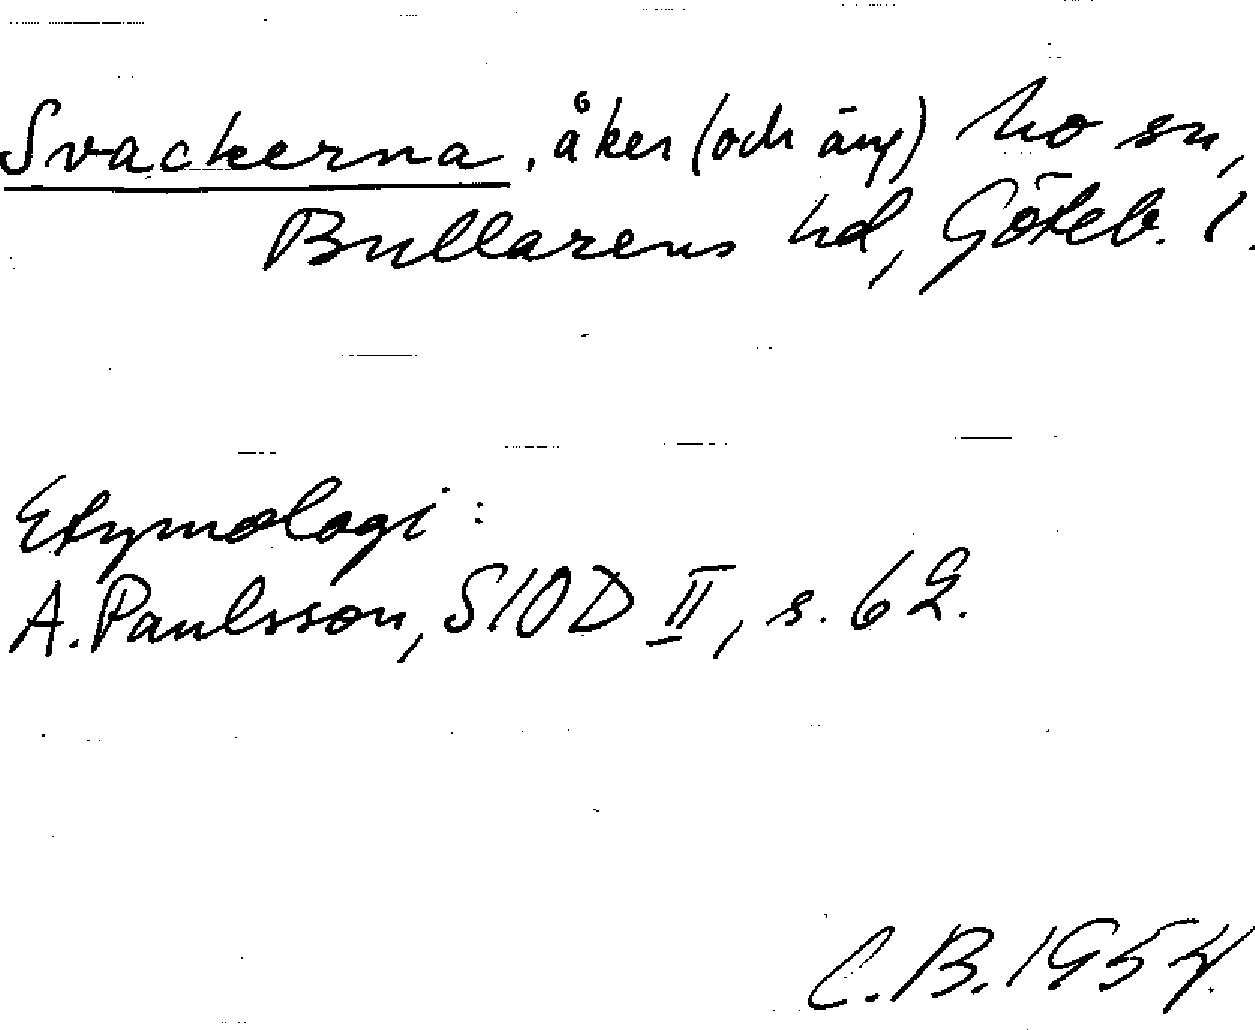 Svackerna, åker (och äng) Mo sn,
Bullarens hd, Göteb. l.
Etymologi:
A. Paulsson, SIOD II, s. 62.
C.B. 1954.